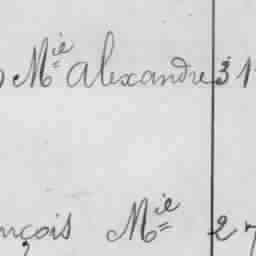 Mie Alexandre 31
nçois Mie 27